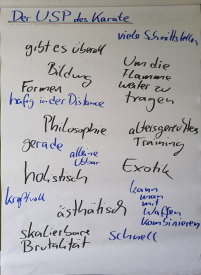 Der USP des Karate
viele Schnittstellen
gibt es überall
Bildung
Um die
Flamme
weiter zu
tragen
Formen
in der Distanz
Philosophie
altersgerechtes
Training
gerade
alleine
übbar
holistisch
Exotik
kraftvoll
kann
man
mit
Waffen
kombinieren
ästhätisch
skalierbare
Brutalität
schnell